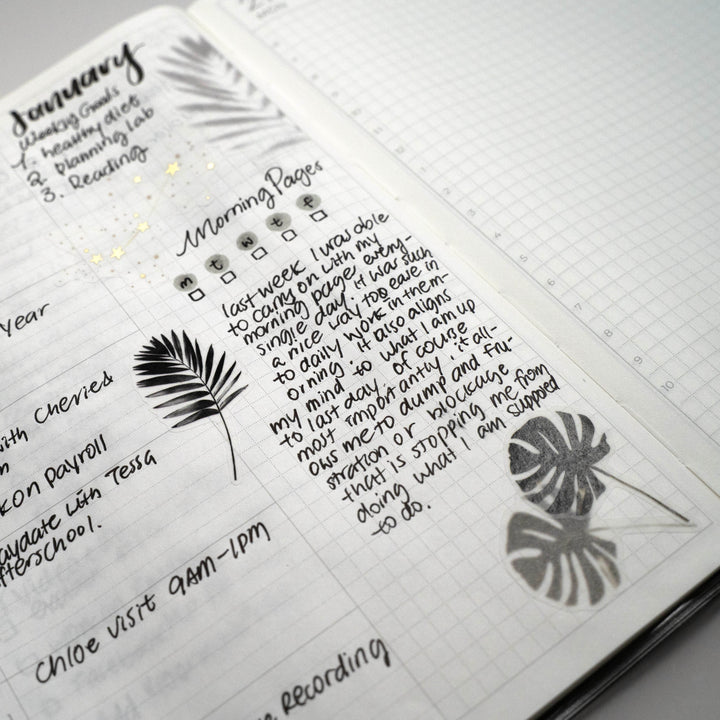 January
Weekly Goals
1. healthy diet
2. planning lab
3. Reading
Morning Pages
m t w t f
last week I was able
to carry on with my
morning page every-
single day. it was such
a nice way too ease in
to daily work in them-
orning. it also aligns
my mind to what I am up
to last day. of course
most importantly, it all-
ows me to dump and fru-
stration or blockage
that is stopping me from
doing what I am supposed
to do.
Year
with Cheries
on payroll
with Tessa
Chloe visit 9AM-1PM
Recording
MON
4
5
6
7
8
9
10